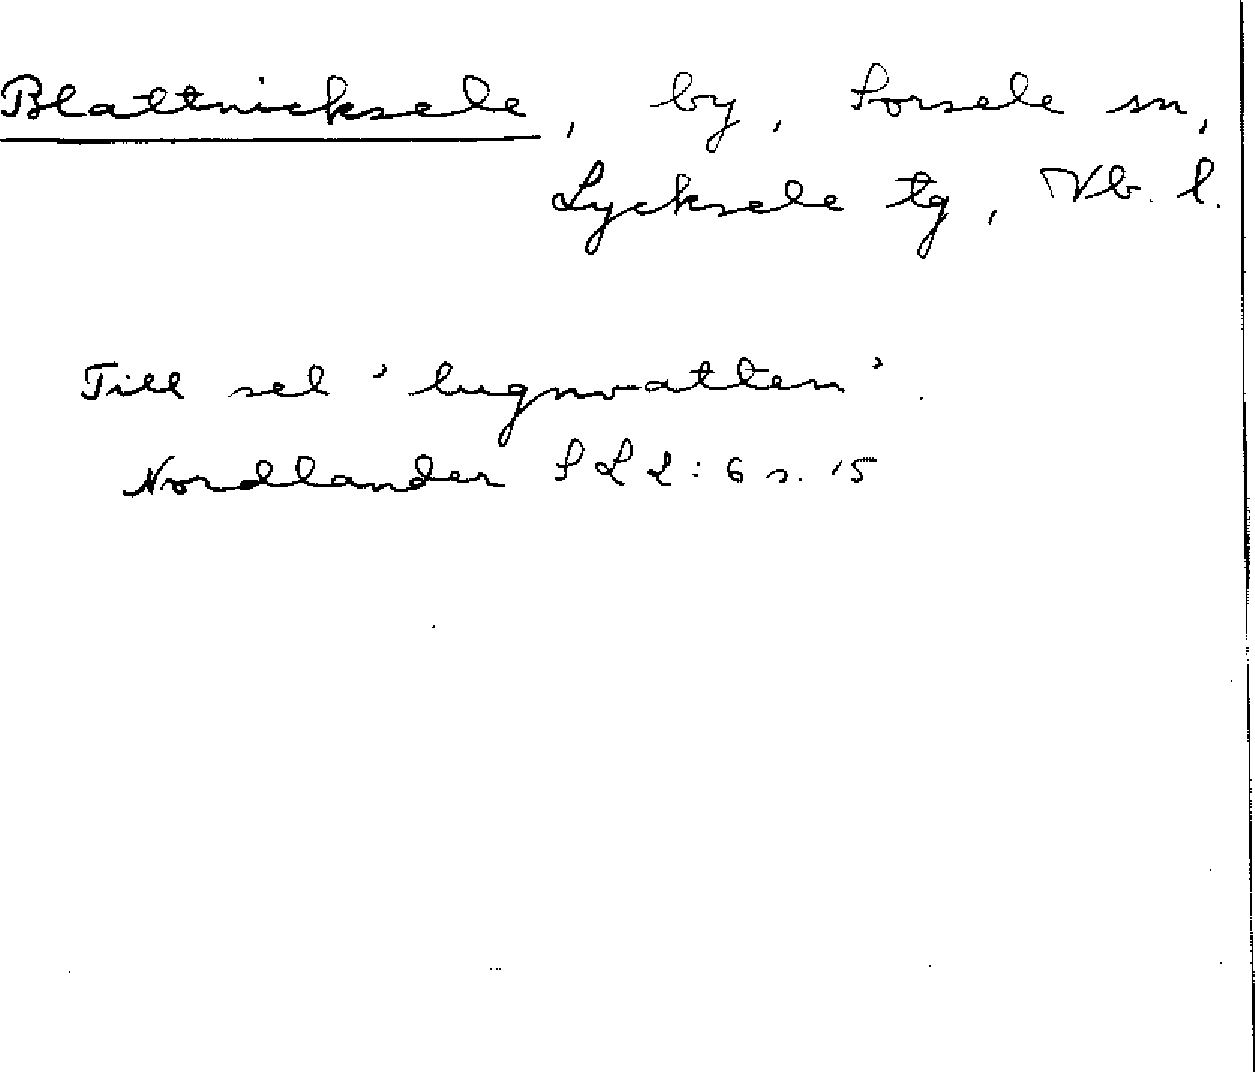 Blattnicksele, by, Sorsele sn,
Lycksele tg, Vb. l.
Till sel 'lugnvatten'.
Nordlander SLL: 6 s. 15